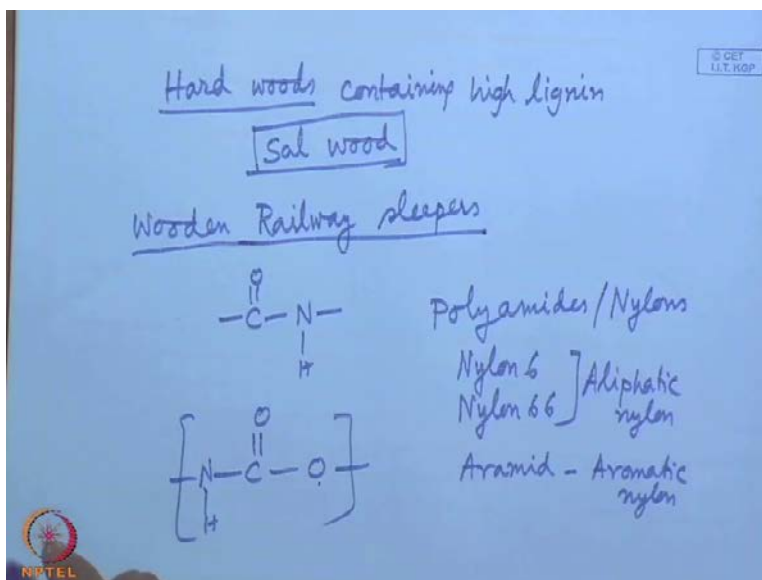 © CET
I.I.T. KGP
Hard woods containing high lignin
Sal wood
Wooden Railway sleepers
O
-C-N-
H
Polyamides/Nylons
Nylon 6
Nylon 66
Aliphatic
nylon
O
-N-C-O-
H
Aramid - Aromatic
nylon
NPTEL